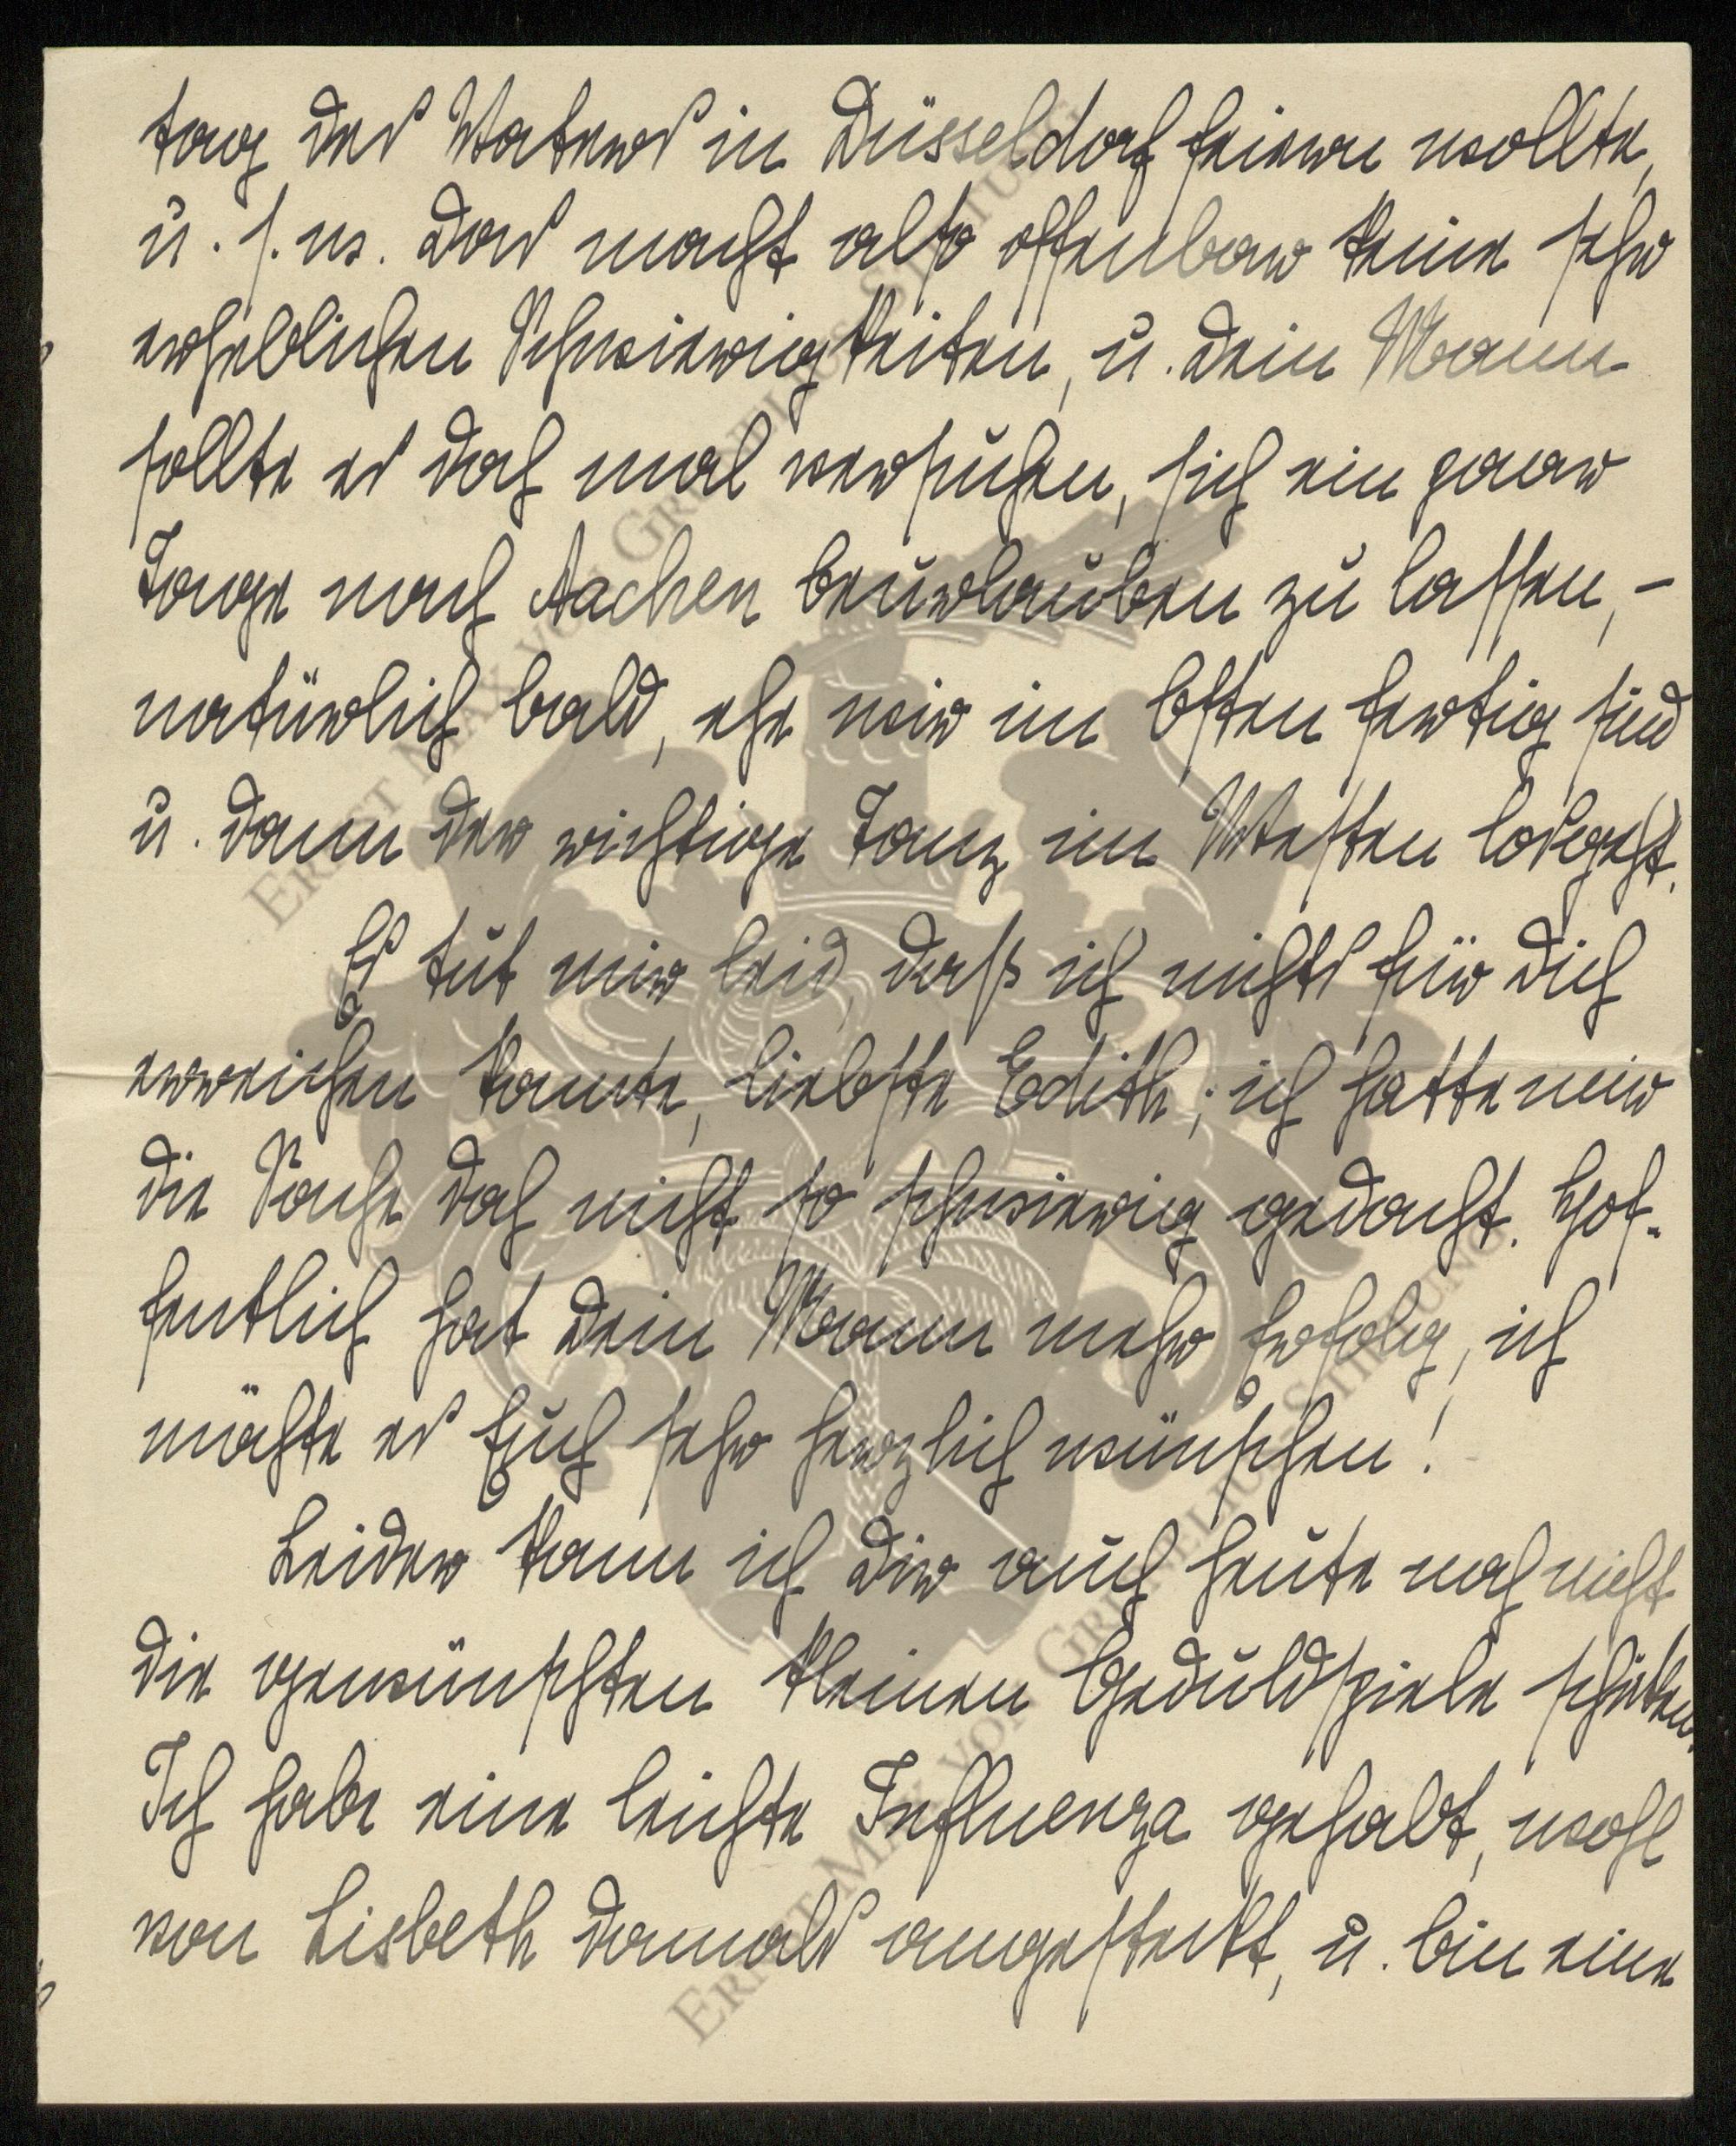 tag des Vaters in Düsseldorf feiern wollte,
u. s. w. Das macht also offenbar keine sehr
erheblichen Schwierigkeiten, u. Dein Mann
sollte es doch mal versuchen, sich ein paar
Tage nach Aachen beurlauben zu lassen, -
natürlich bald, ehe wir im Osten fertig sind
u. dann der richtige Tanz im Westen losgeht.
Es tut mir leid, daß ich nichts für Dich
erreichen konnte, liebste Edith; ich hatte mir
die Sache doch nicht so schwierig gedacht. Hof-
fentlich hat Dein Mann mehr Erfolg, ich
möchte es Euch sehr herzlich wünschen!
Leider kann ich Dir auch heute noch nicht
die gewünschten kleinen Geduldspiele schicken.
Ich habe eine leichte Influenza gehabt, wohl
von Lisbeth damals angesteckt, u. bin eine
ERNST MAX VON GRUNELIUS STIFTUNG
ERNST MAX VON GRUNELIUS STIFTUNG